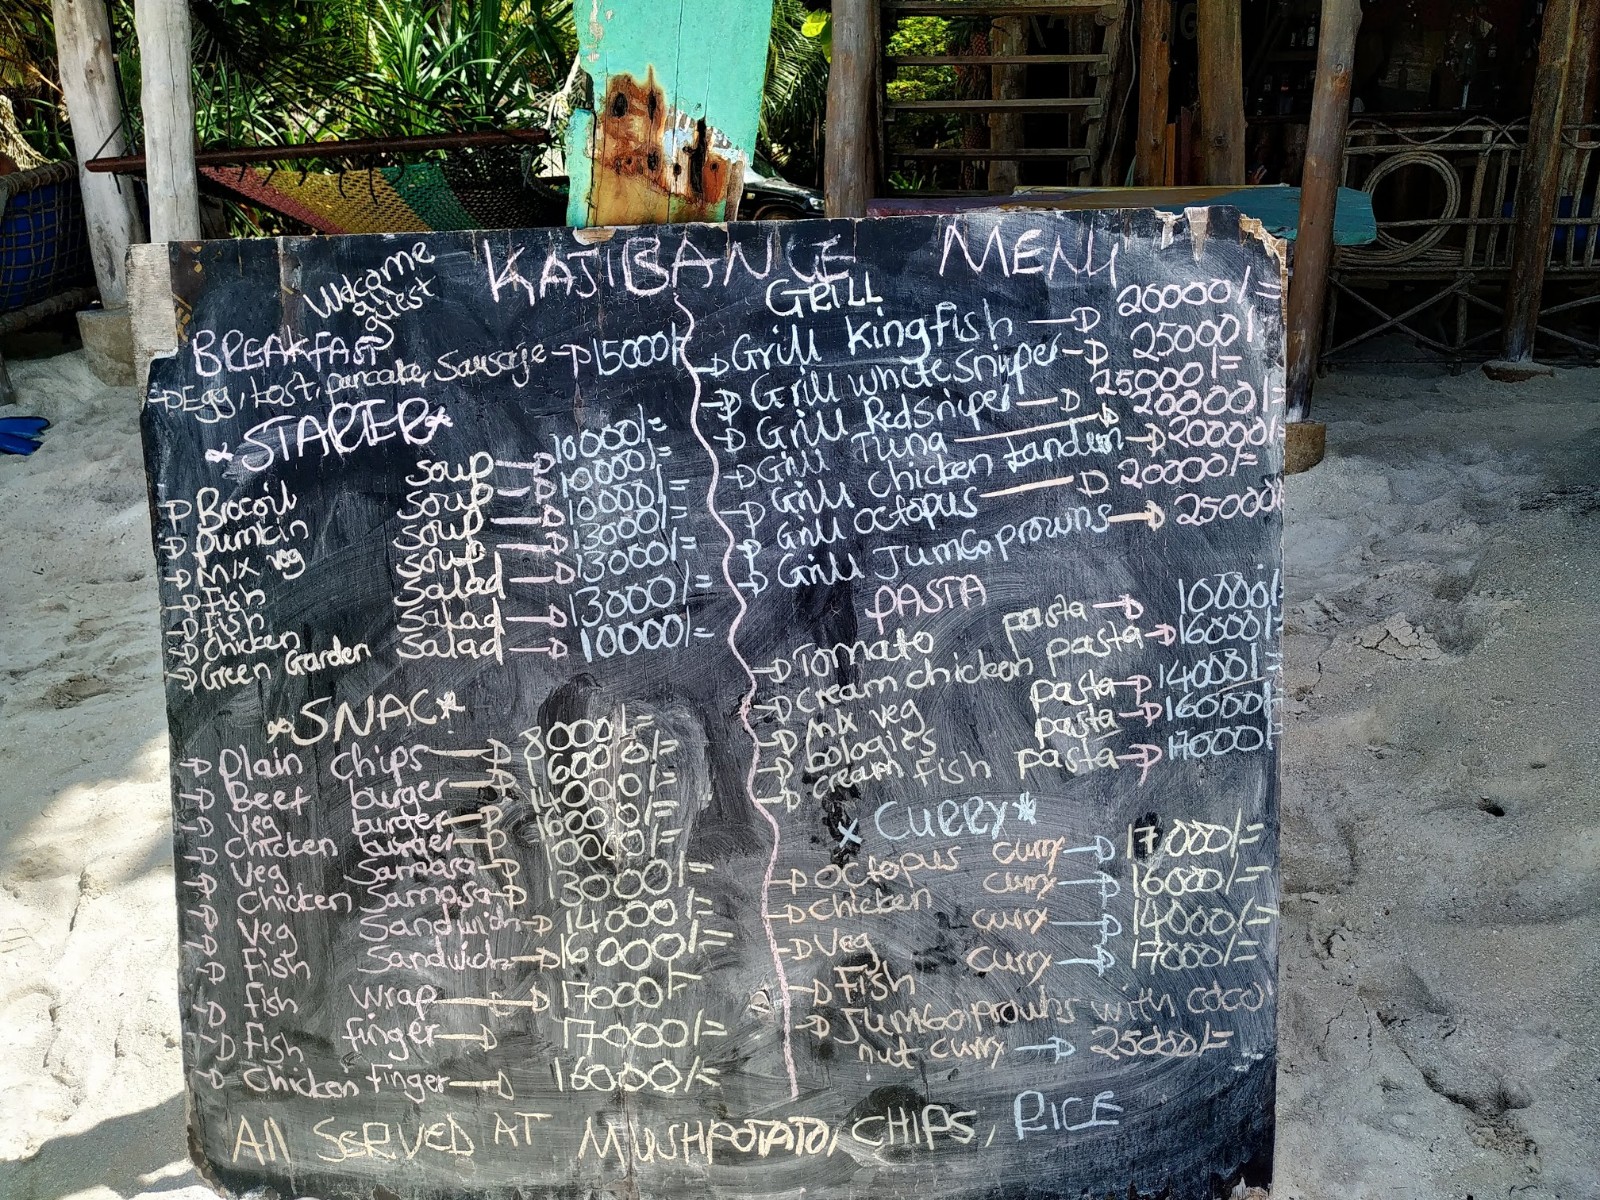 KAJIBANGE MENU
Welcome
all
guest
BREAKFAST
Egg, tost, pancake, Sausage 15000/=
*STARTER*
Brocoil soup 10000/=
pumkin soup 10000/=
Mix veg soup 10000/=
Fish soup 13000/=
Fish Salad 13000/=
Chicken Salad 13000/=
Green Garden Salad 10000/=
*SNAC*
Plain Chips 8000/=
Beef burger 16000/=
Veg burger 14000/=
Chicken burger 16000/=
Veg Samosa 10000/=
Chicken Samosa 13000/=
Veg Sandwich 14000/=
Fish Sandwich 16000/=
Fish wrap 17000/=
Fish finger 17000/=
Chicken finger 16000/=
GRILL
Grill kingfish 20000/=
Grill whitesniper 25000/=
Grill Redsniper 25000/=
Grill Tuna 20000/=
Grill chicken tanderi 20000/=
Grill octopus 20000/=
Grill Jumbo prowns 25000/
PASTA
Tomato pasta 10000/=
Cream chicken pasta 16000/=
Mix veg pasta 14000/=
bologies pasta 16000/=
cream fish pasta 17000/=
* CURRY*
octopus curry 17000/=
chicken curry 16000/=
Veg curry 14000/=
Fish curry 17000/=
Jumbo prowns with coco
nut curry 25000/=
All SERVED AT MUSHPOTATO, CHIPS, RICE